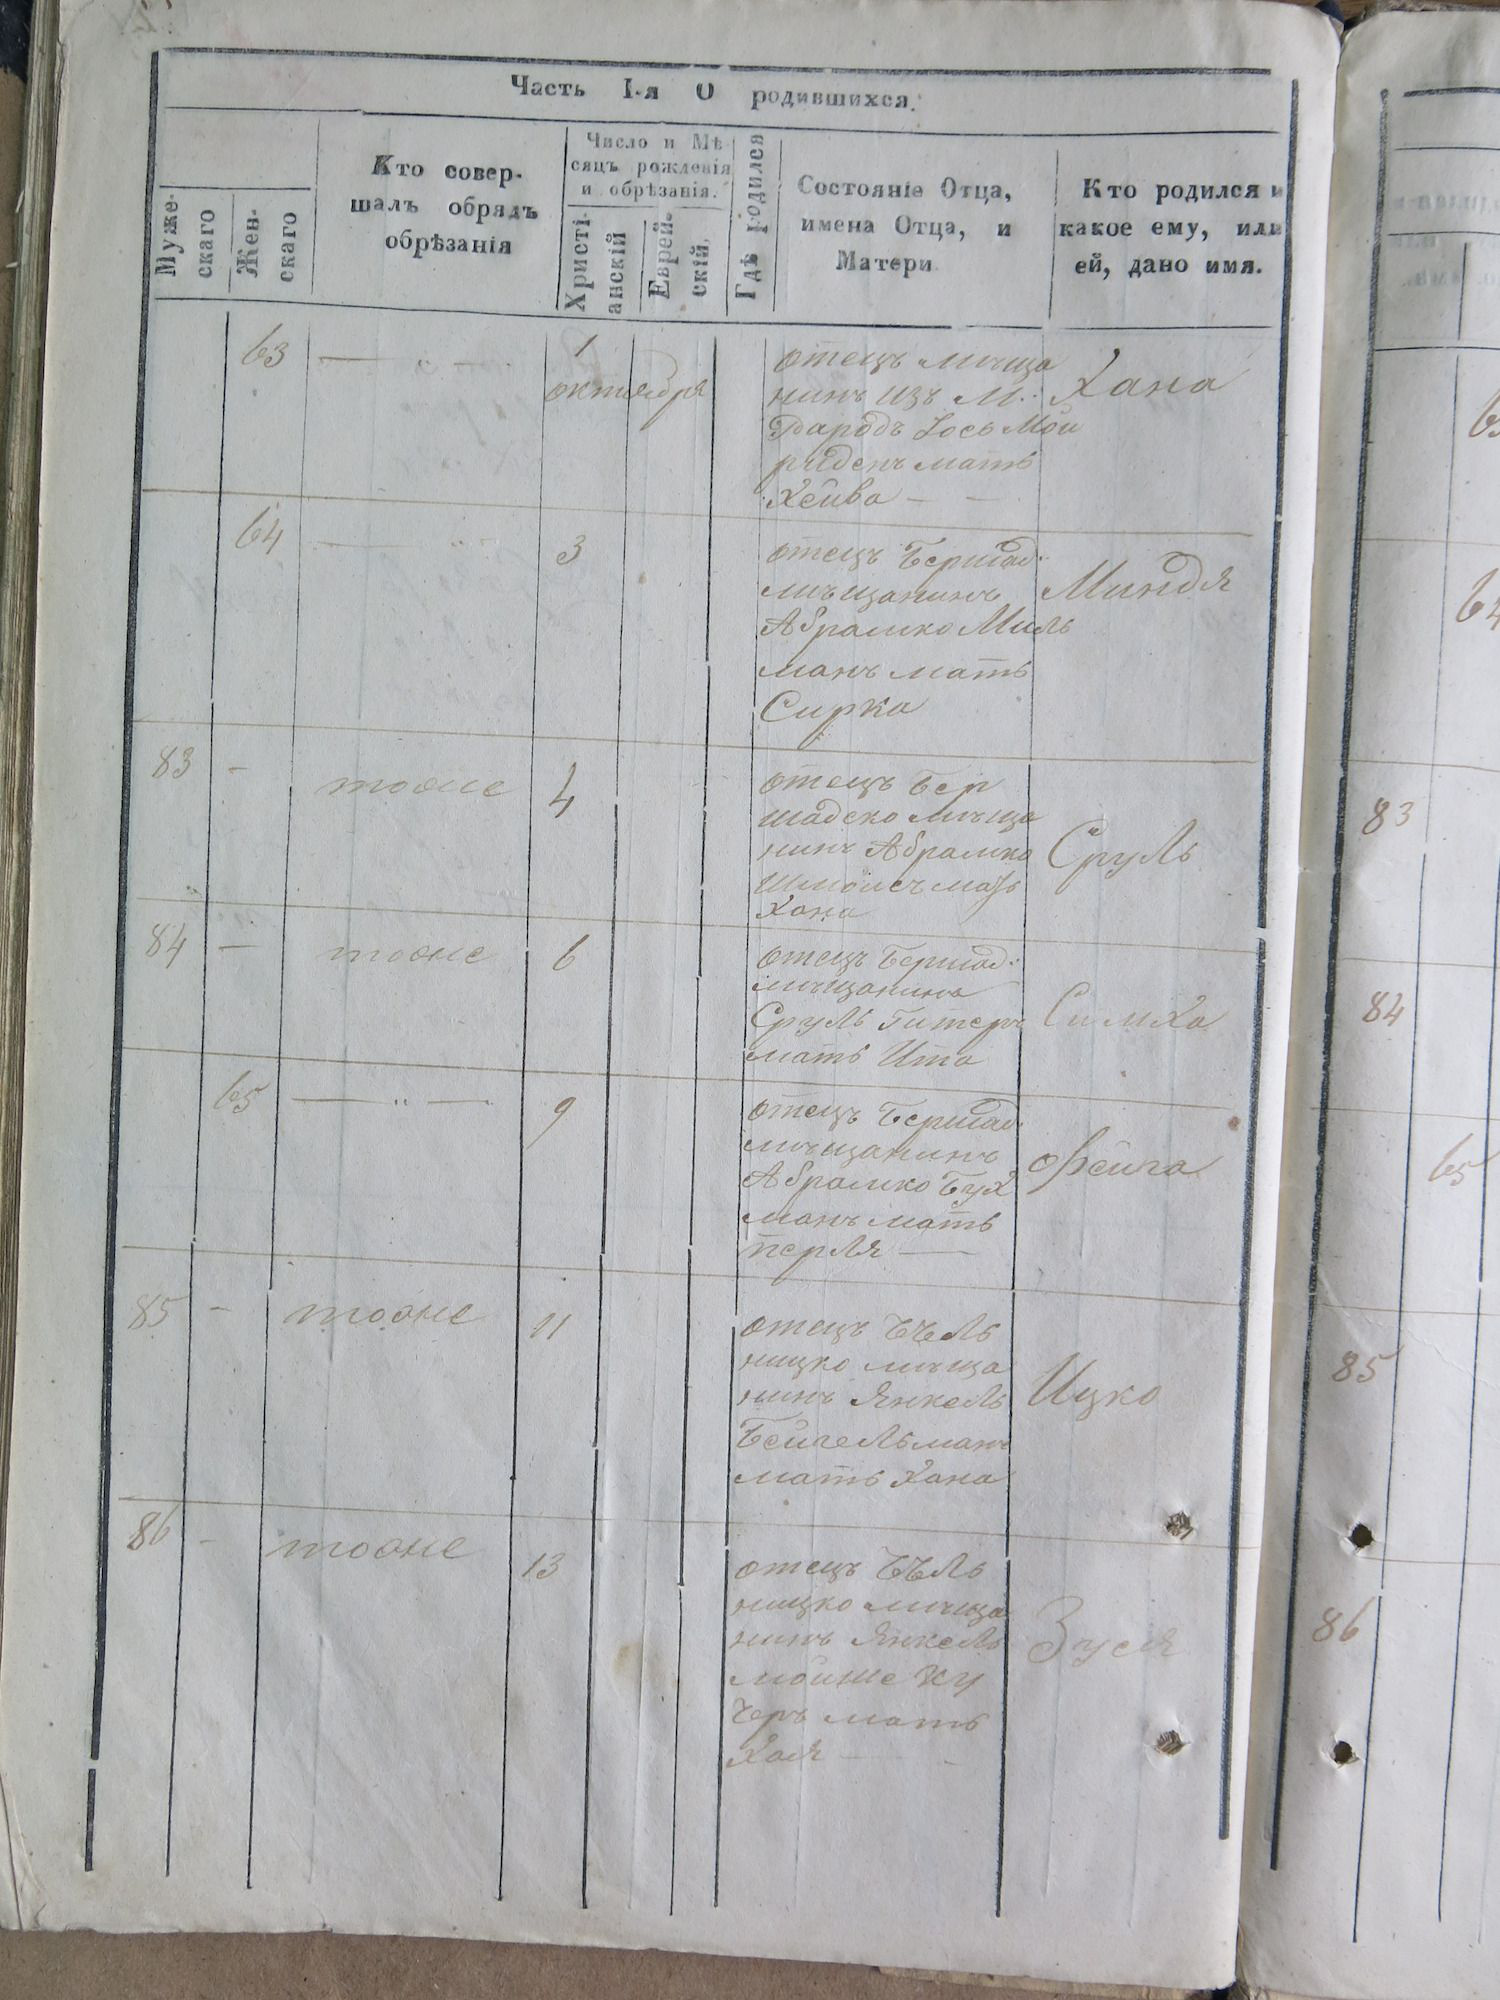 Часть I-я О родившихся.
Мужескаго
Женскаго
Кто совер-
шалъ обрядъ
обрѣзанія
Число и Мѣ-
сяцъ рожденія
и обрѣзанія.
Христіанскій
Еврейскій.
Гдѣ родился
Состояніе Отца,
имена Отца, и
Матери
Кто родился и
какое ему, или
ей, дано имя.
63 — „ — 1
октября
отецъ мѣща
нинъ изъ М.
Іось Мой
мать
Хейва — —
Хана
64 — „ — 3
отецъ Бершад.
мѣщанинъ
Абрамко Миль
манъ мать
Сирка
Миндя
83 — тоже 4
отецъ Бер
шадско мѣща
нинъ Абрамко
мать
Хана
Сруль
84 — тоже 6
отецъ Бершад.
мѣщанинъ
Сруль Гитеръ
мать Ита
Симха
65 — „ — 9
отецъ Бершад.
мѣщанинъ
Абрамко Бух
манъ мать
перля —
Фейга
85 — тоже 11
отецъ Бѣль
ницко мѣща
нинъ Янкель
Бейгельманъ
мать Хана
Ицко
86 — тоже 13
отецъ Бѣль
ницко мѣща
нинъ Янкель
мойше Ку
черъ мать
Хая — -
Зуся
83
84
65
85
86